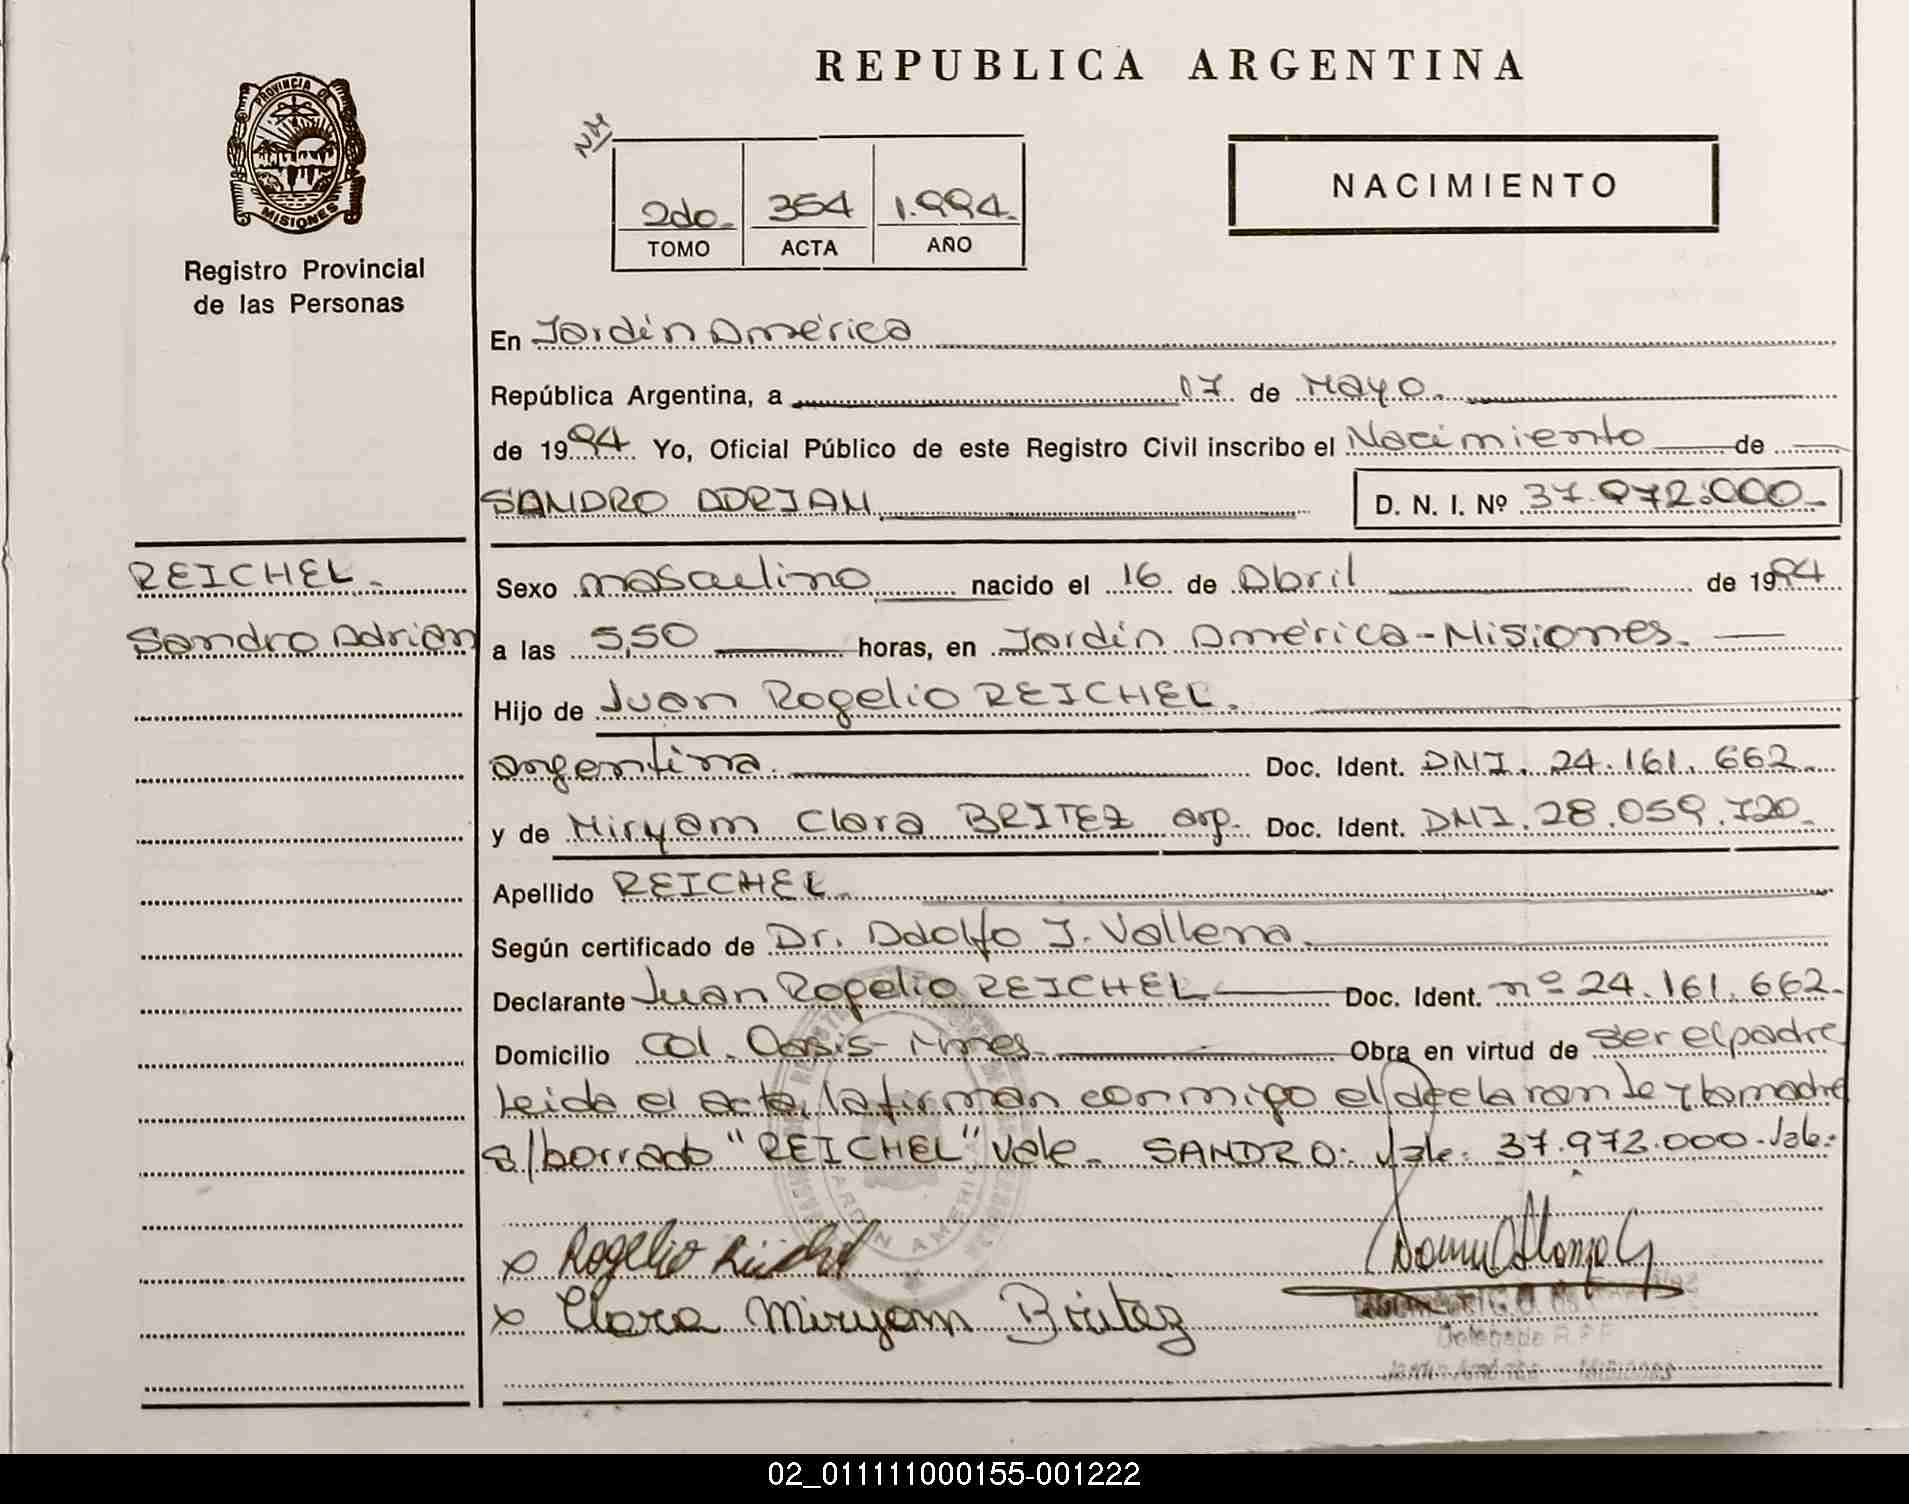 REPUBLICA ARGENTINA
PROVINCIA DE
MISIONES
Registro Provincial
de las Personas
NM
2do. 354 1.994.
TOMO ACTA AÑO
NACIMIENTO
En Jardín América
República Argentina, a 17 de Mayo.
de 1994 Yo, Oficial Público de este Registro Civil inscribo el Nacimiento de
SANDRO ADRIAN. D. N. I. Nº 37.972.000-
REICHEL.
Sandro Adrián
Sexo masculino nacido el 16 de Abril de 1994
a las 5,50 horas, en Jardín América-Misiones.
Hijo de Juan Rogelio REICHEL.
argentina. Doc. Ident. DNI. 24.161.662.
y de Miryam Clara BRITEZ arg. Doc. Ident. DNI. 28.059.720.
Apellido REICHEL.
Según certificado de Dr. Adolfo J.
Declarante Juan Rogelio REICHEL Doc. Ident. nº 24.161.662.
Domicilio Col. Oasis- Mnes. Obra en virtud de ser el padre
Leida el acta, la firman conmigo el declarante y la madre
s/borrado "REICHEL" Vale. SANDRO: Vale: 37.972.000. Vale.
x Rogelio Reichel
x Clara Miryam Britez
JARDIN AMERICA
Delegada
Jardín América - Misiones
02_011111000155-001222